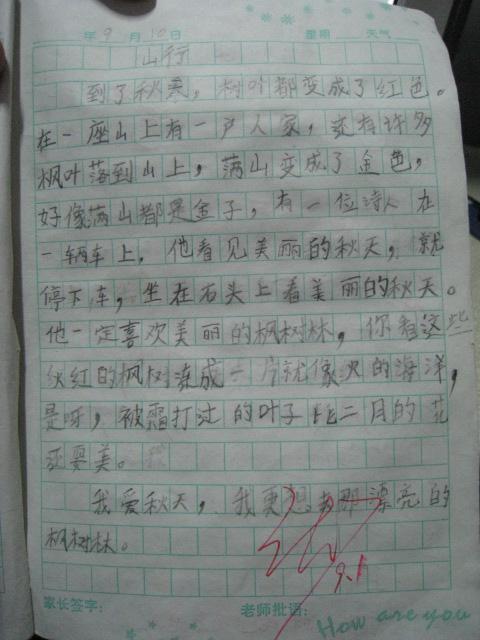 年 9 月 10 日 星期 天气
山行
到了秋天，树叶都变成了红色。
在一座山上有一户人家，还有许多
枫叶落到山上，满山变成了金色，
好像满山都是金子，有一位诗人在
一辆车上，他看见美丽的秋天，就
停下车，坐在石头上看美丽的秋天。
他一定喜欢美丽的枫树林，你看这些
火红的枫树连成一片就像火的海洋，
是呀，被霜打过的叶子比二月的花
还要美。
我爱秋天，我更想去那漂亮的
枫树林。
9.1
家长签字： 老师批语：
How are you